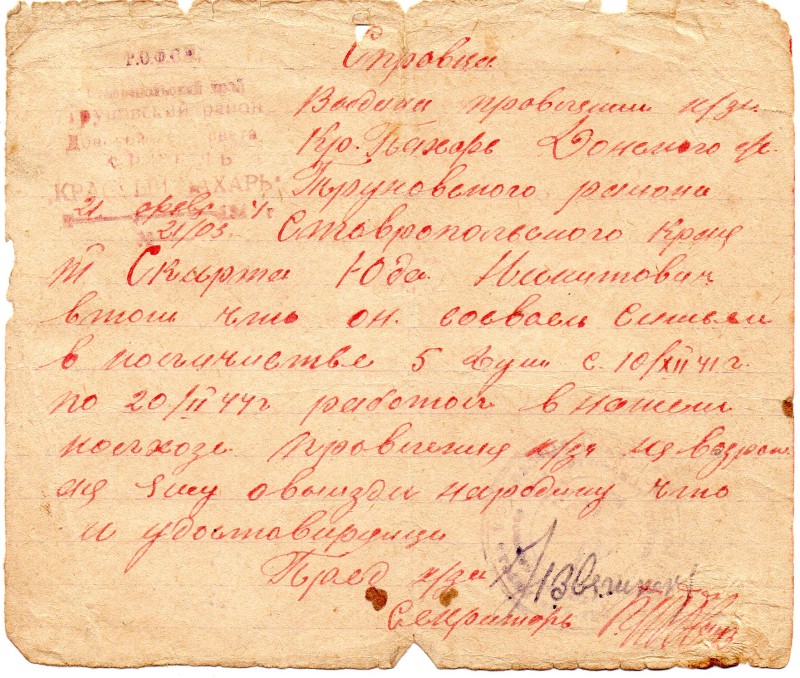 Р.С.Ф.С.Р.
Ставропольский край
Труновский район
"КРАСНЫЙ ПАХАРЬ"
21 февр 1944 г
№ 21/03.
Справка
Выдана провлении к/за
Кр. Пахарь Донского с/с.
Труновского района
Ставропольского края
т Скирта Юда
втом что он. сосваей симьей
в количистве 5 душ с. 10/XII 41 г.
по 20/II 44 г работал в нашем
колхозе провления к/за не возрож
ея ему овыизди народину что
и удостовиряица
Пред к/за
Секритарь